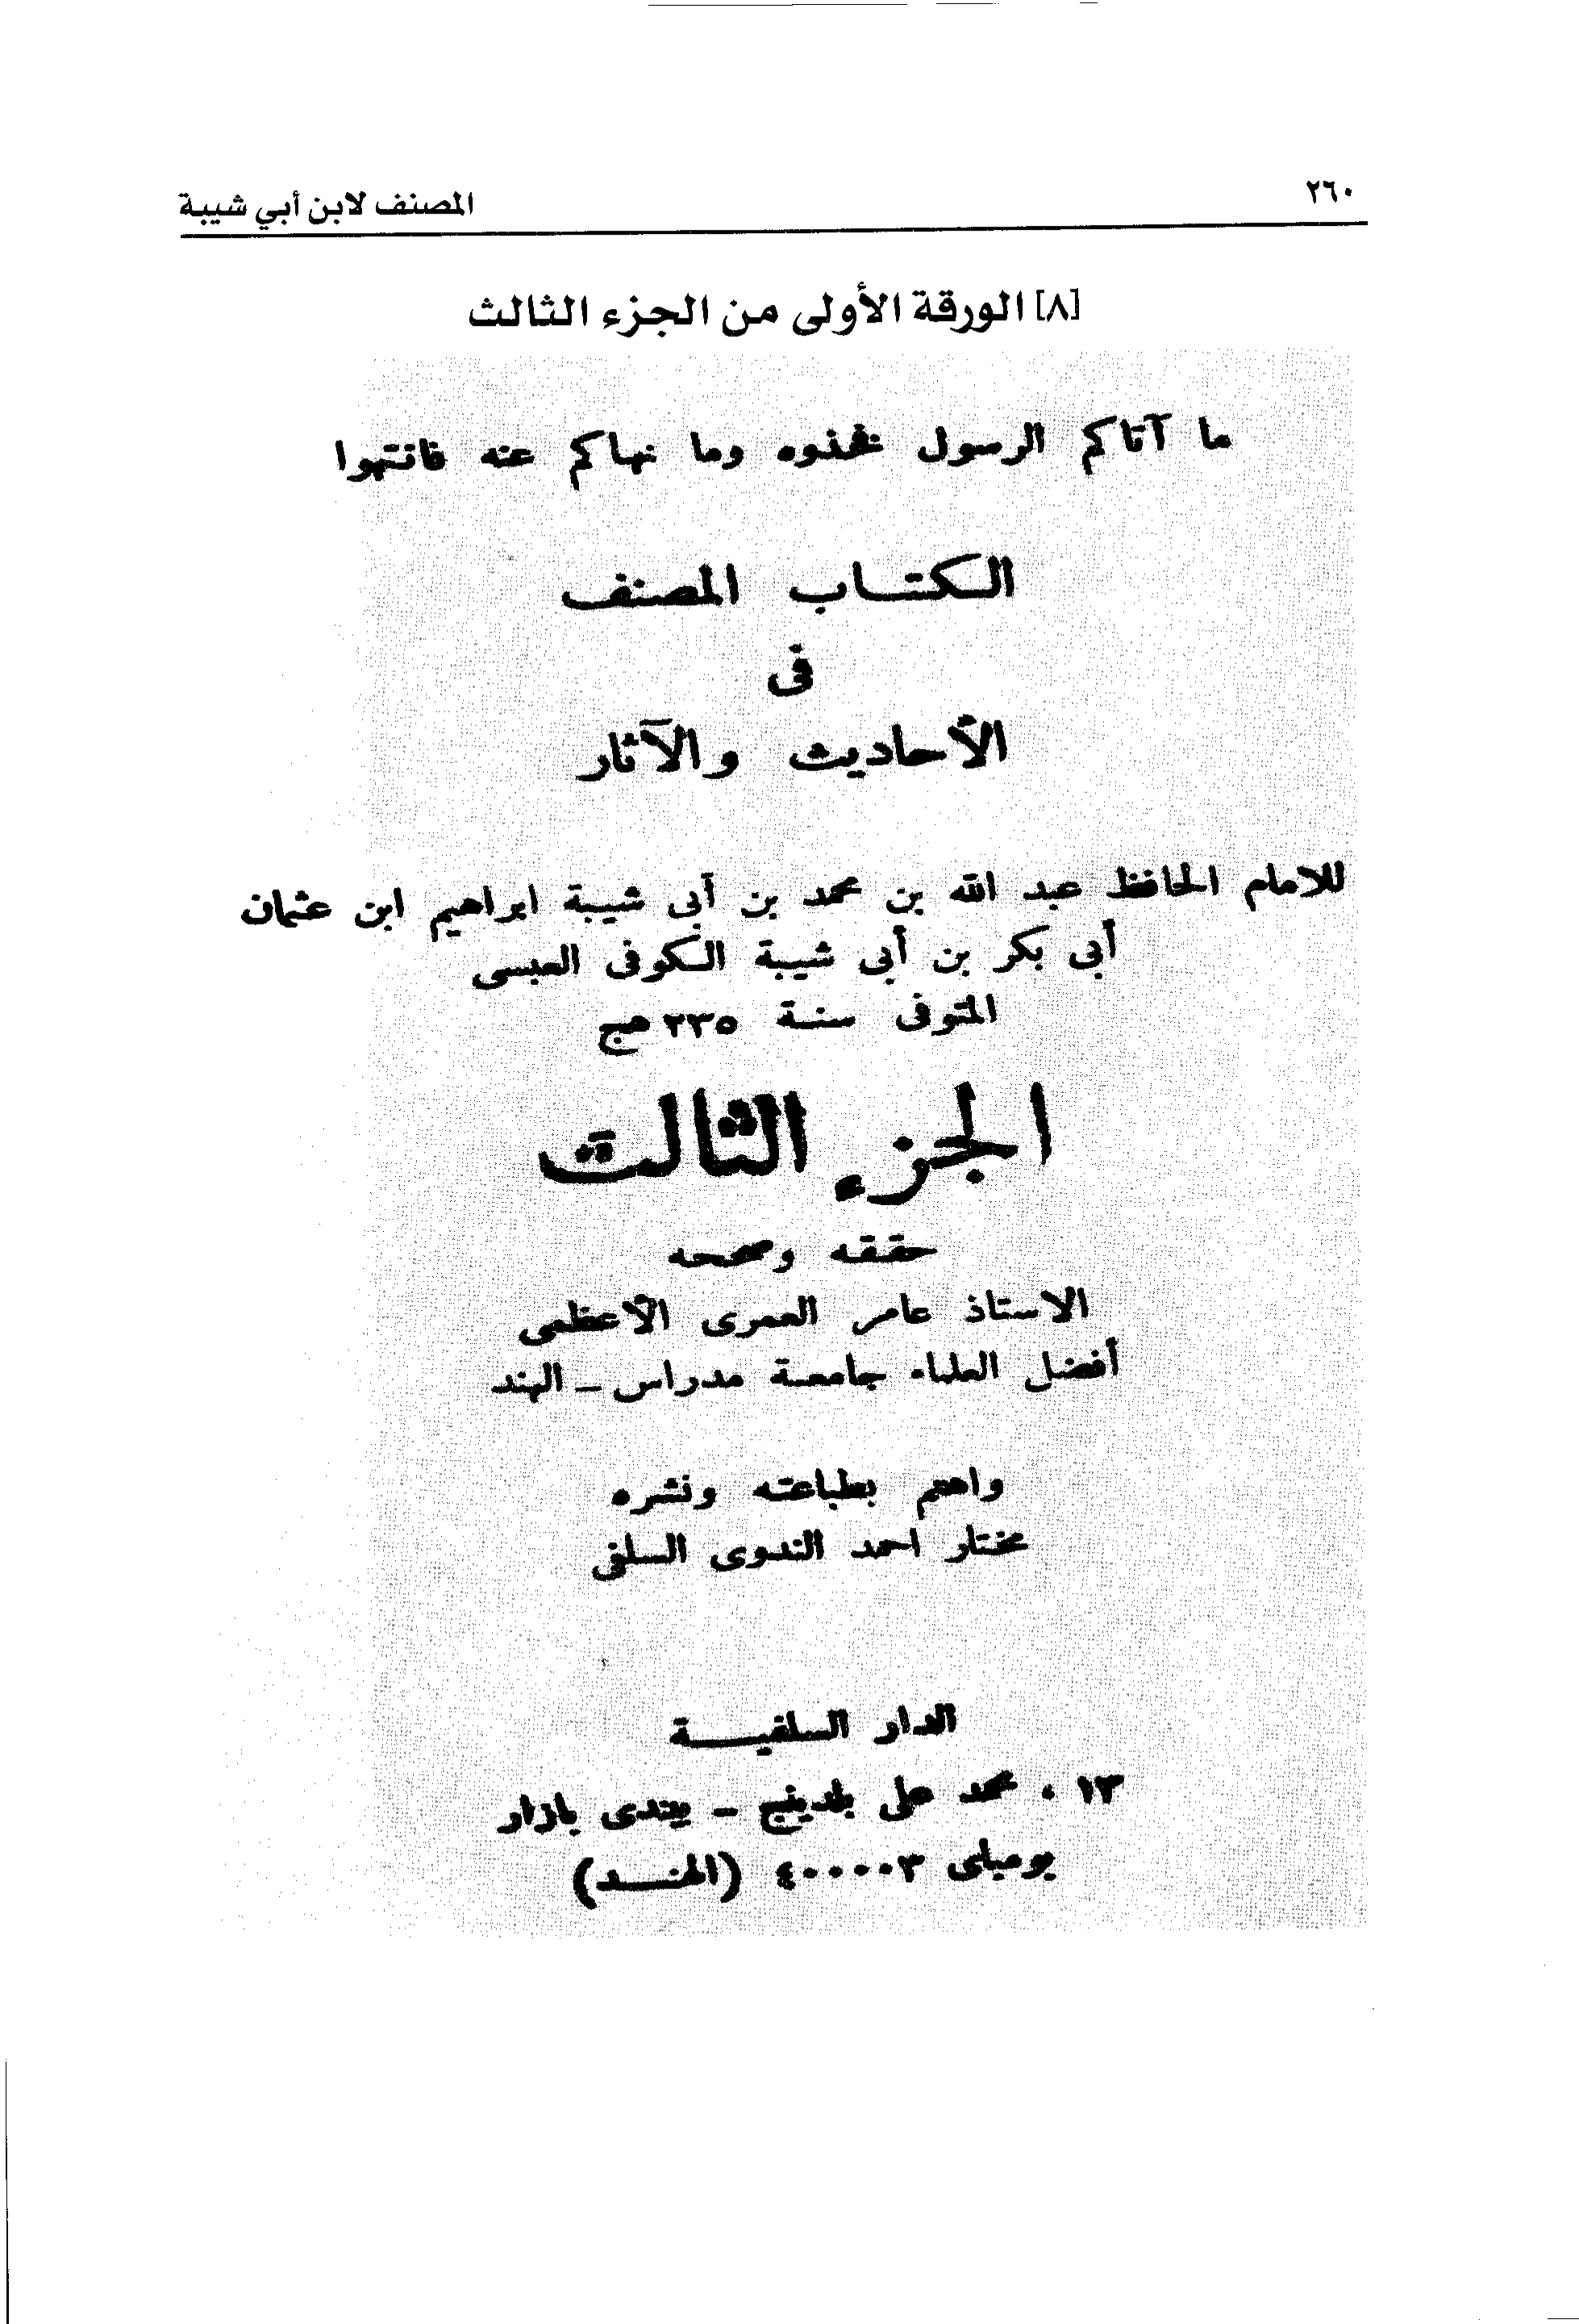 ٢٦٠
المصنف لابن أبي شيبة
[٨] الورقة الأولى من الجزء الثالث
ما آتاكم الرسول فخذوه وما نهاكم عنه فانتهوا
الكتاب المصنف
فى
الأحاديث والآثار
للامام الحافظ عبد الله بن محمد بن أبى شيبة ابراهيم ابن عثمان
أبى بكر بن أبى شيبة الكوفى العبسى
المتوفى سنة ٢٣٥ هـج
الجزء الثالث
حققه وصححه
الاستاذ عامر العمرى الأعظمى
أفضل العلماء جامعة مدراس - الهند
واهتم بطباعته ونشره
مختار احمد الندوى السلفى
الدار السلفية
١٣ ، محمد على بلدينج - بيندى بازار
بومباى ٤٠٠٠٠٣ (الهند)